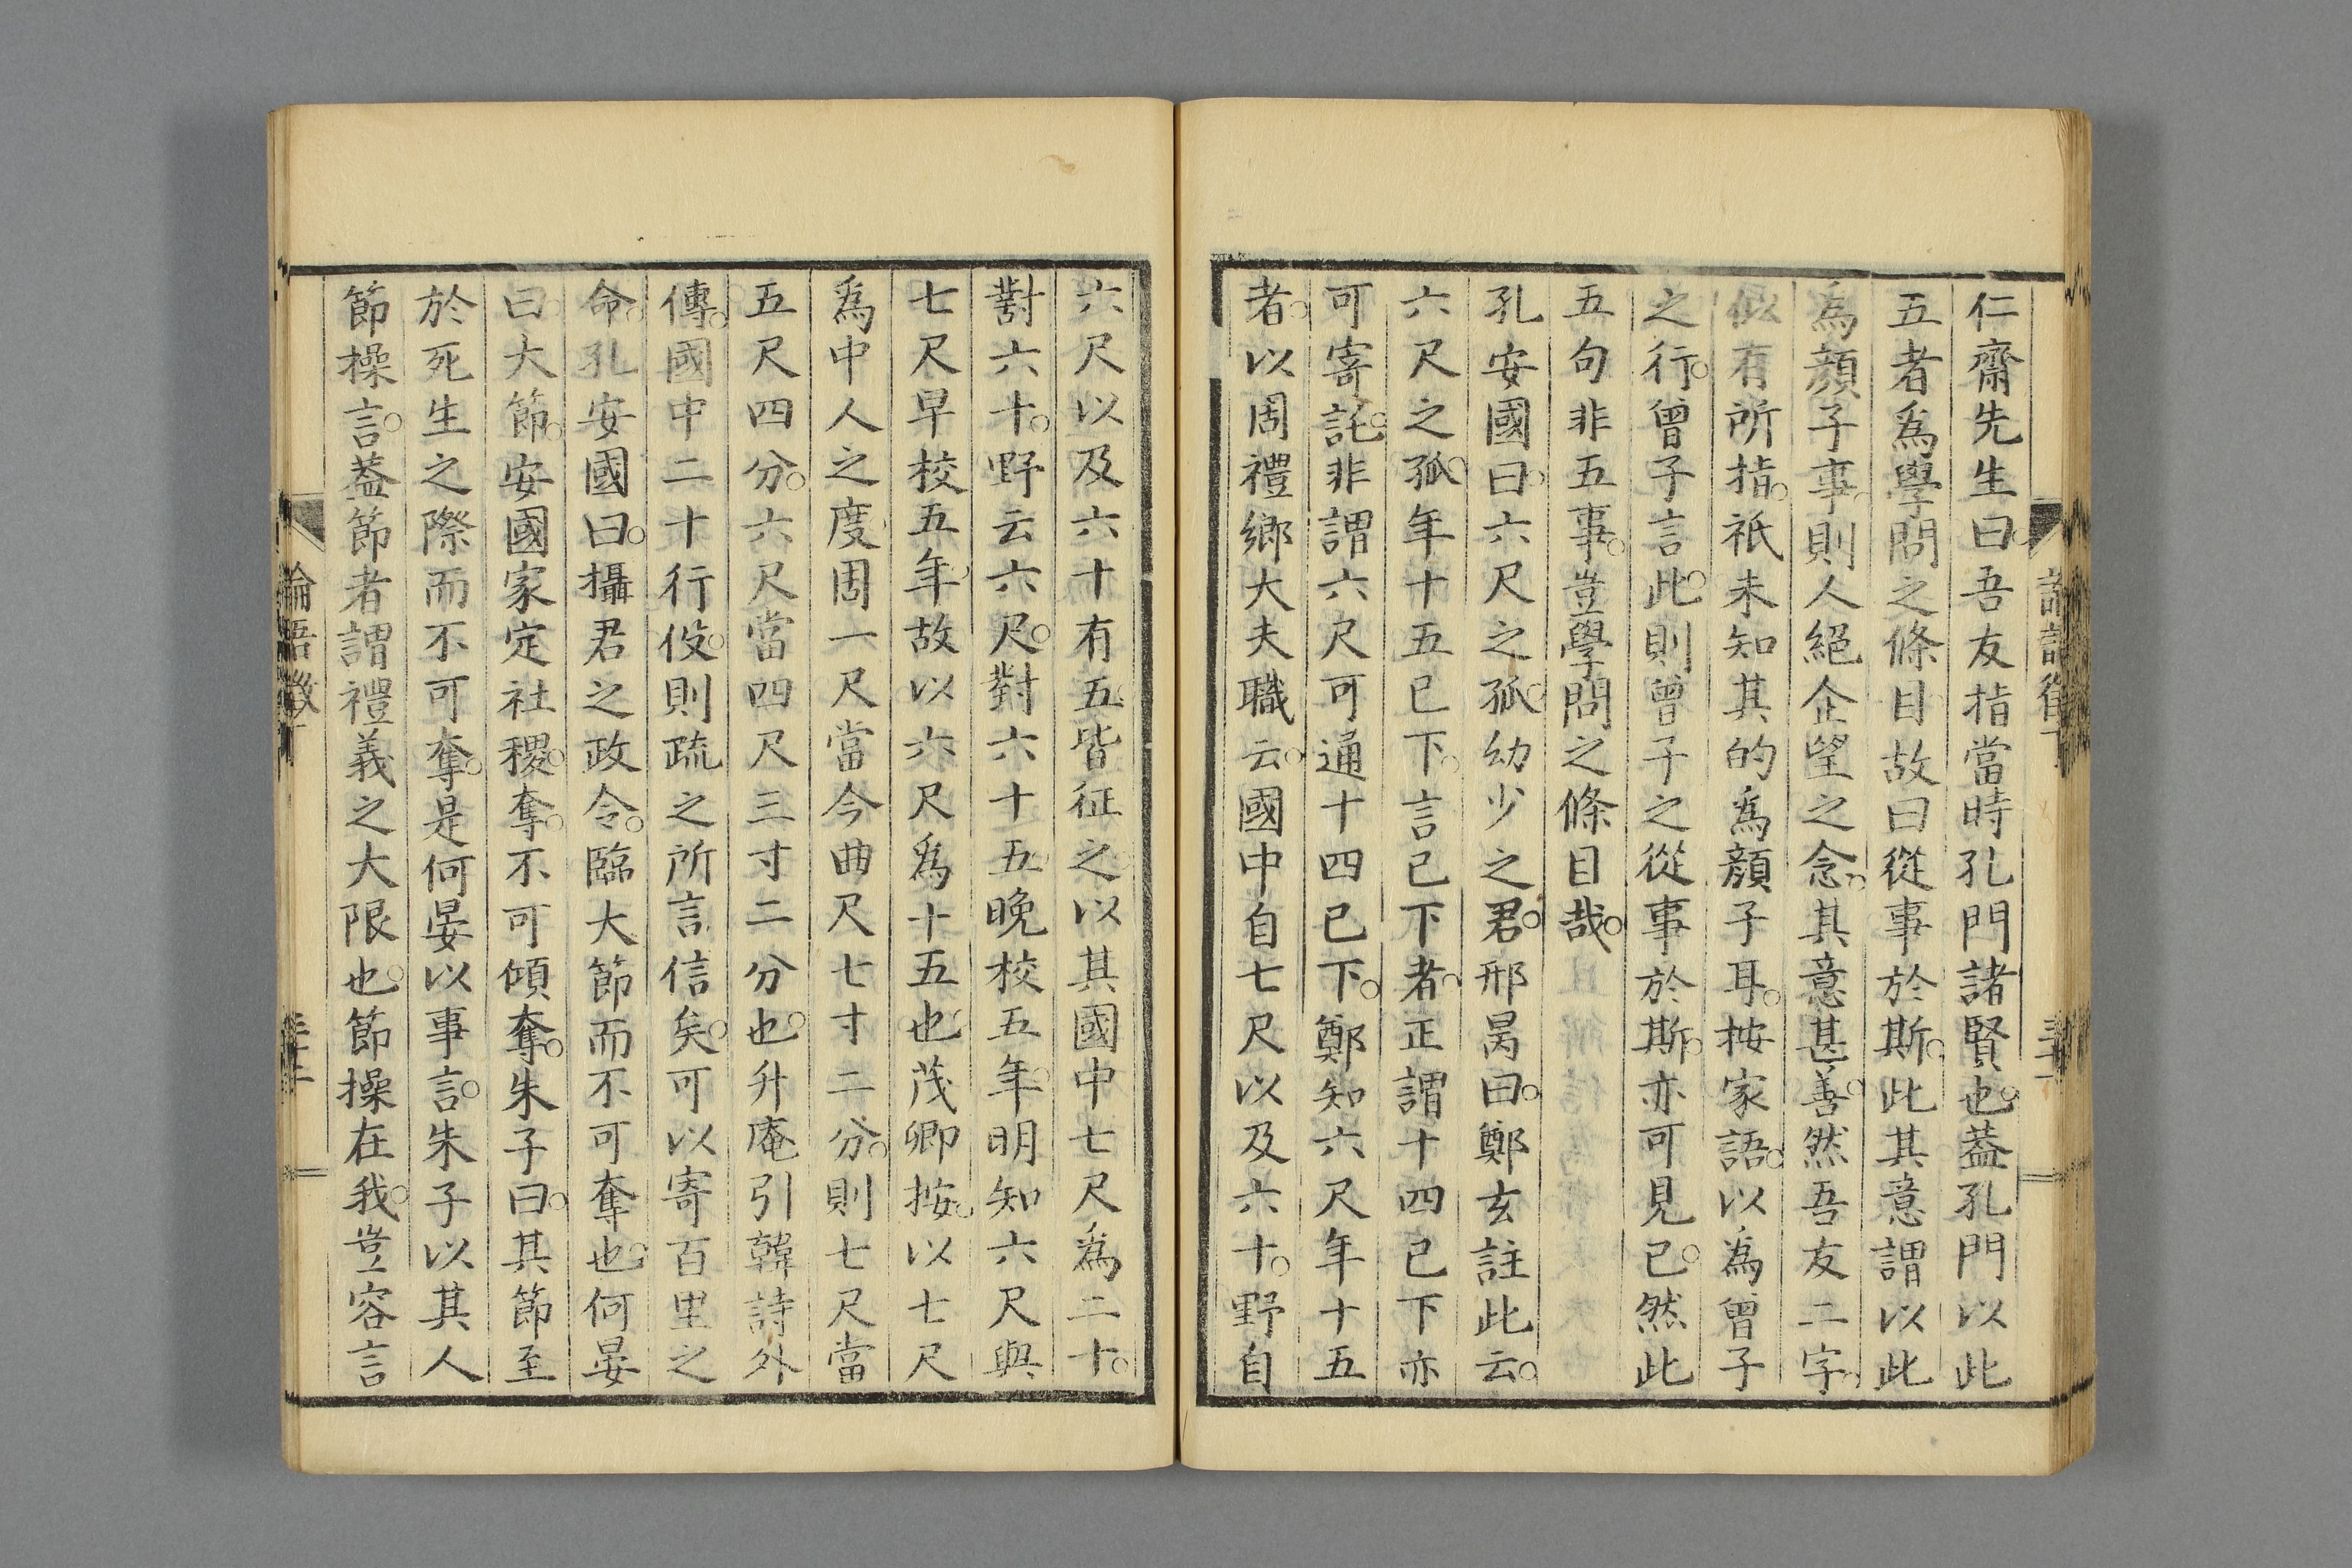 仁齋先生曰吾友指當時孔門諸賢也葢孔門以此
五者爲學問之條目故曰從事於斯此其意謂以此
爲顏子事則人絕企望之念其意甚善然吾友二字
似有所指祇未知其的爲顏子耳按家語以爲曾子
之行曾子言此則曾子之從事於斯亦可見已然此
五句非五事豈學問之條目哉
孔安國曰六尺之孤幼少之君邢昺曰鄭玄註此云
六尺之孤年十五已下言已下者正謂十四已下亦
可寄託非謂六尺可通十四已下鄭知六尺年十五
者以周禮鄉大夫職云國中自七尺以及六十野自
六尺以及六十有五皆征之以其國中七尺爲二十
對六十野云六尺對六十五晚校五年明知六尺與
七尺早校五年故以六尺爲十五也茂卿按以七尺
爲中人之度周一尺當今曲尺七寸二分則七尺當
五尺四分六尺當四尺三寸二分也升庵引韓詩外
傳國中二十行役則疏之所言信矣可以寄百里之
命孔安國曰攝君之政令臨大節而不可奪也何晏
曰大節安國家定社稷奪不可傾奪朱子曰其節至
於死生之際而不可奪是何晏以事言朱子以其人
節操言葢節者謂禮義之大限也節操在我豈容言
論語徵丁